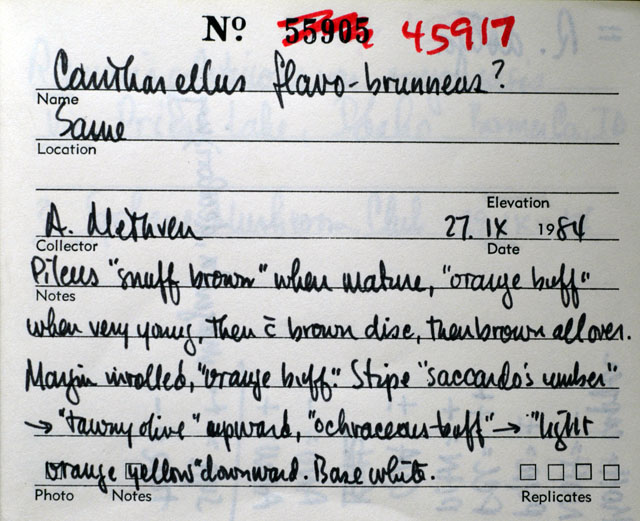 Nº 55905 45917
Cantharellus flavo-brunneus?
Name
Same
Location
Elevation
A. Methven 27. IX 1984
Collector Date
Pileus "snuff brown" when mature, "orange buff"
Notes
when very young, then c̄ brown disc, then brown all over.
Margin inrolled, "orange buff". Stipe "saccardo's umber"
→ "tawny olive" upward, "ochraceous-buff" → "light
orange yellow" downward. Base white.
Photo Notes Replicates